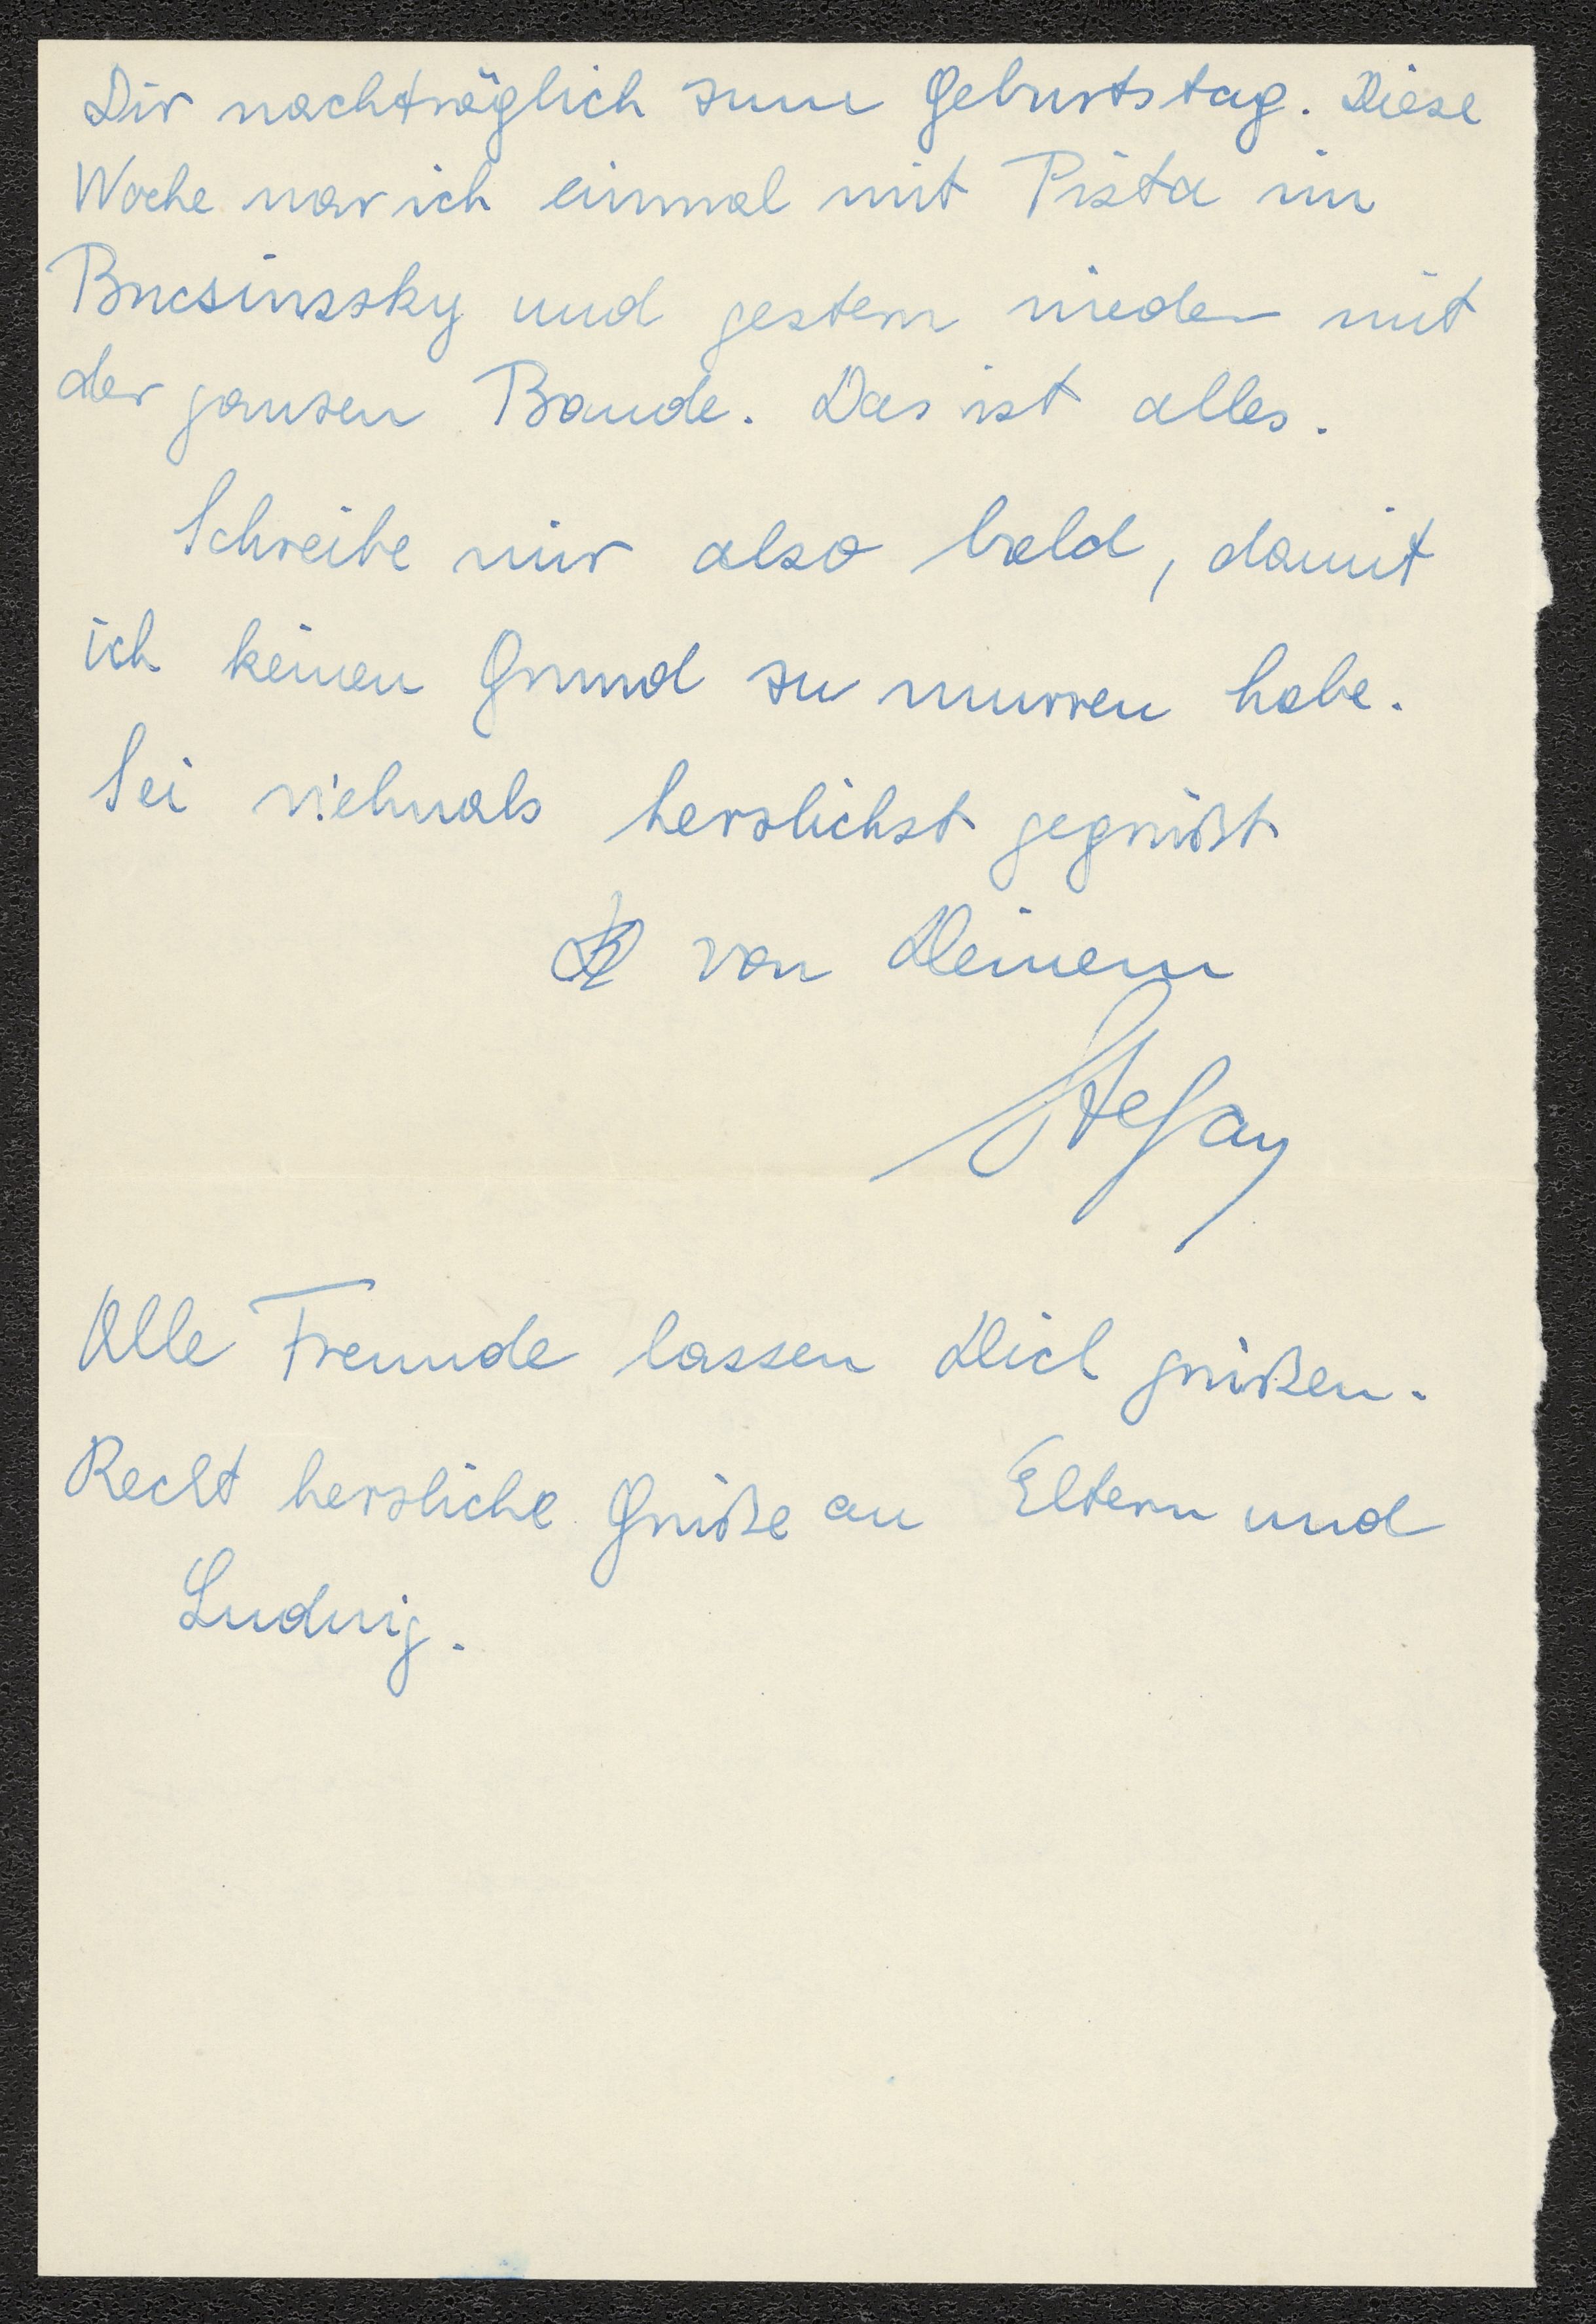 Dir nachträglich zum Geburtstag. Diese
Woche war ich einmal mit Pista im
Bucsinszky und gestern wieder mit
der ganzen Bande. Das ist alles.
Schreibe mir also bald, damit
ich keinen Grund zu murren habe.
Sei vielmals herzlichst gegrüßt
von Deinem
Stefan
Alle Freunde lassen Dich grüßen.
Recht herzliche Grüße an Eltern und
Ludwig.